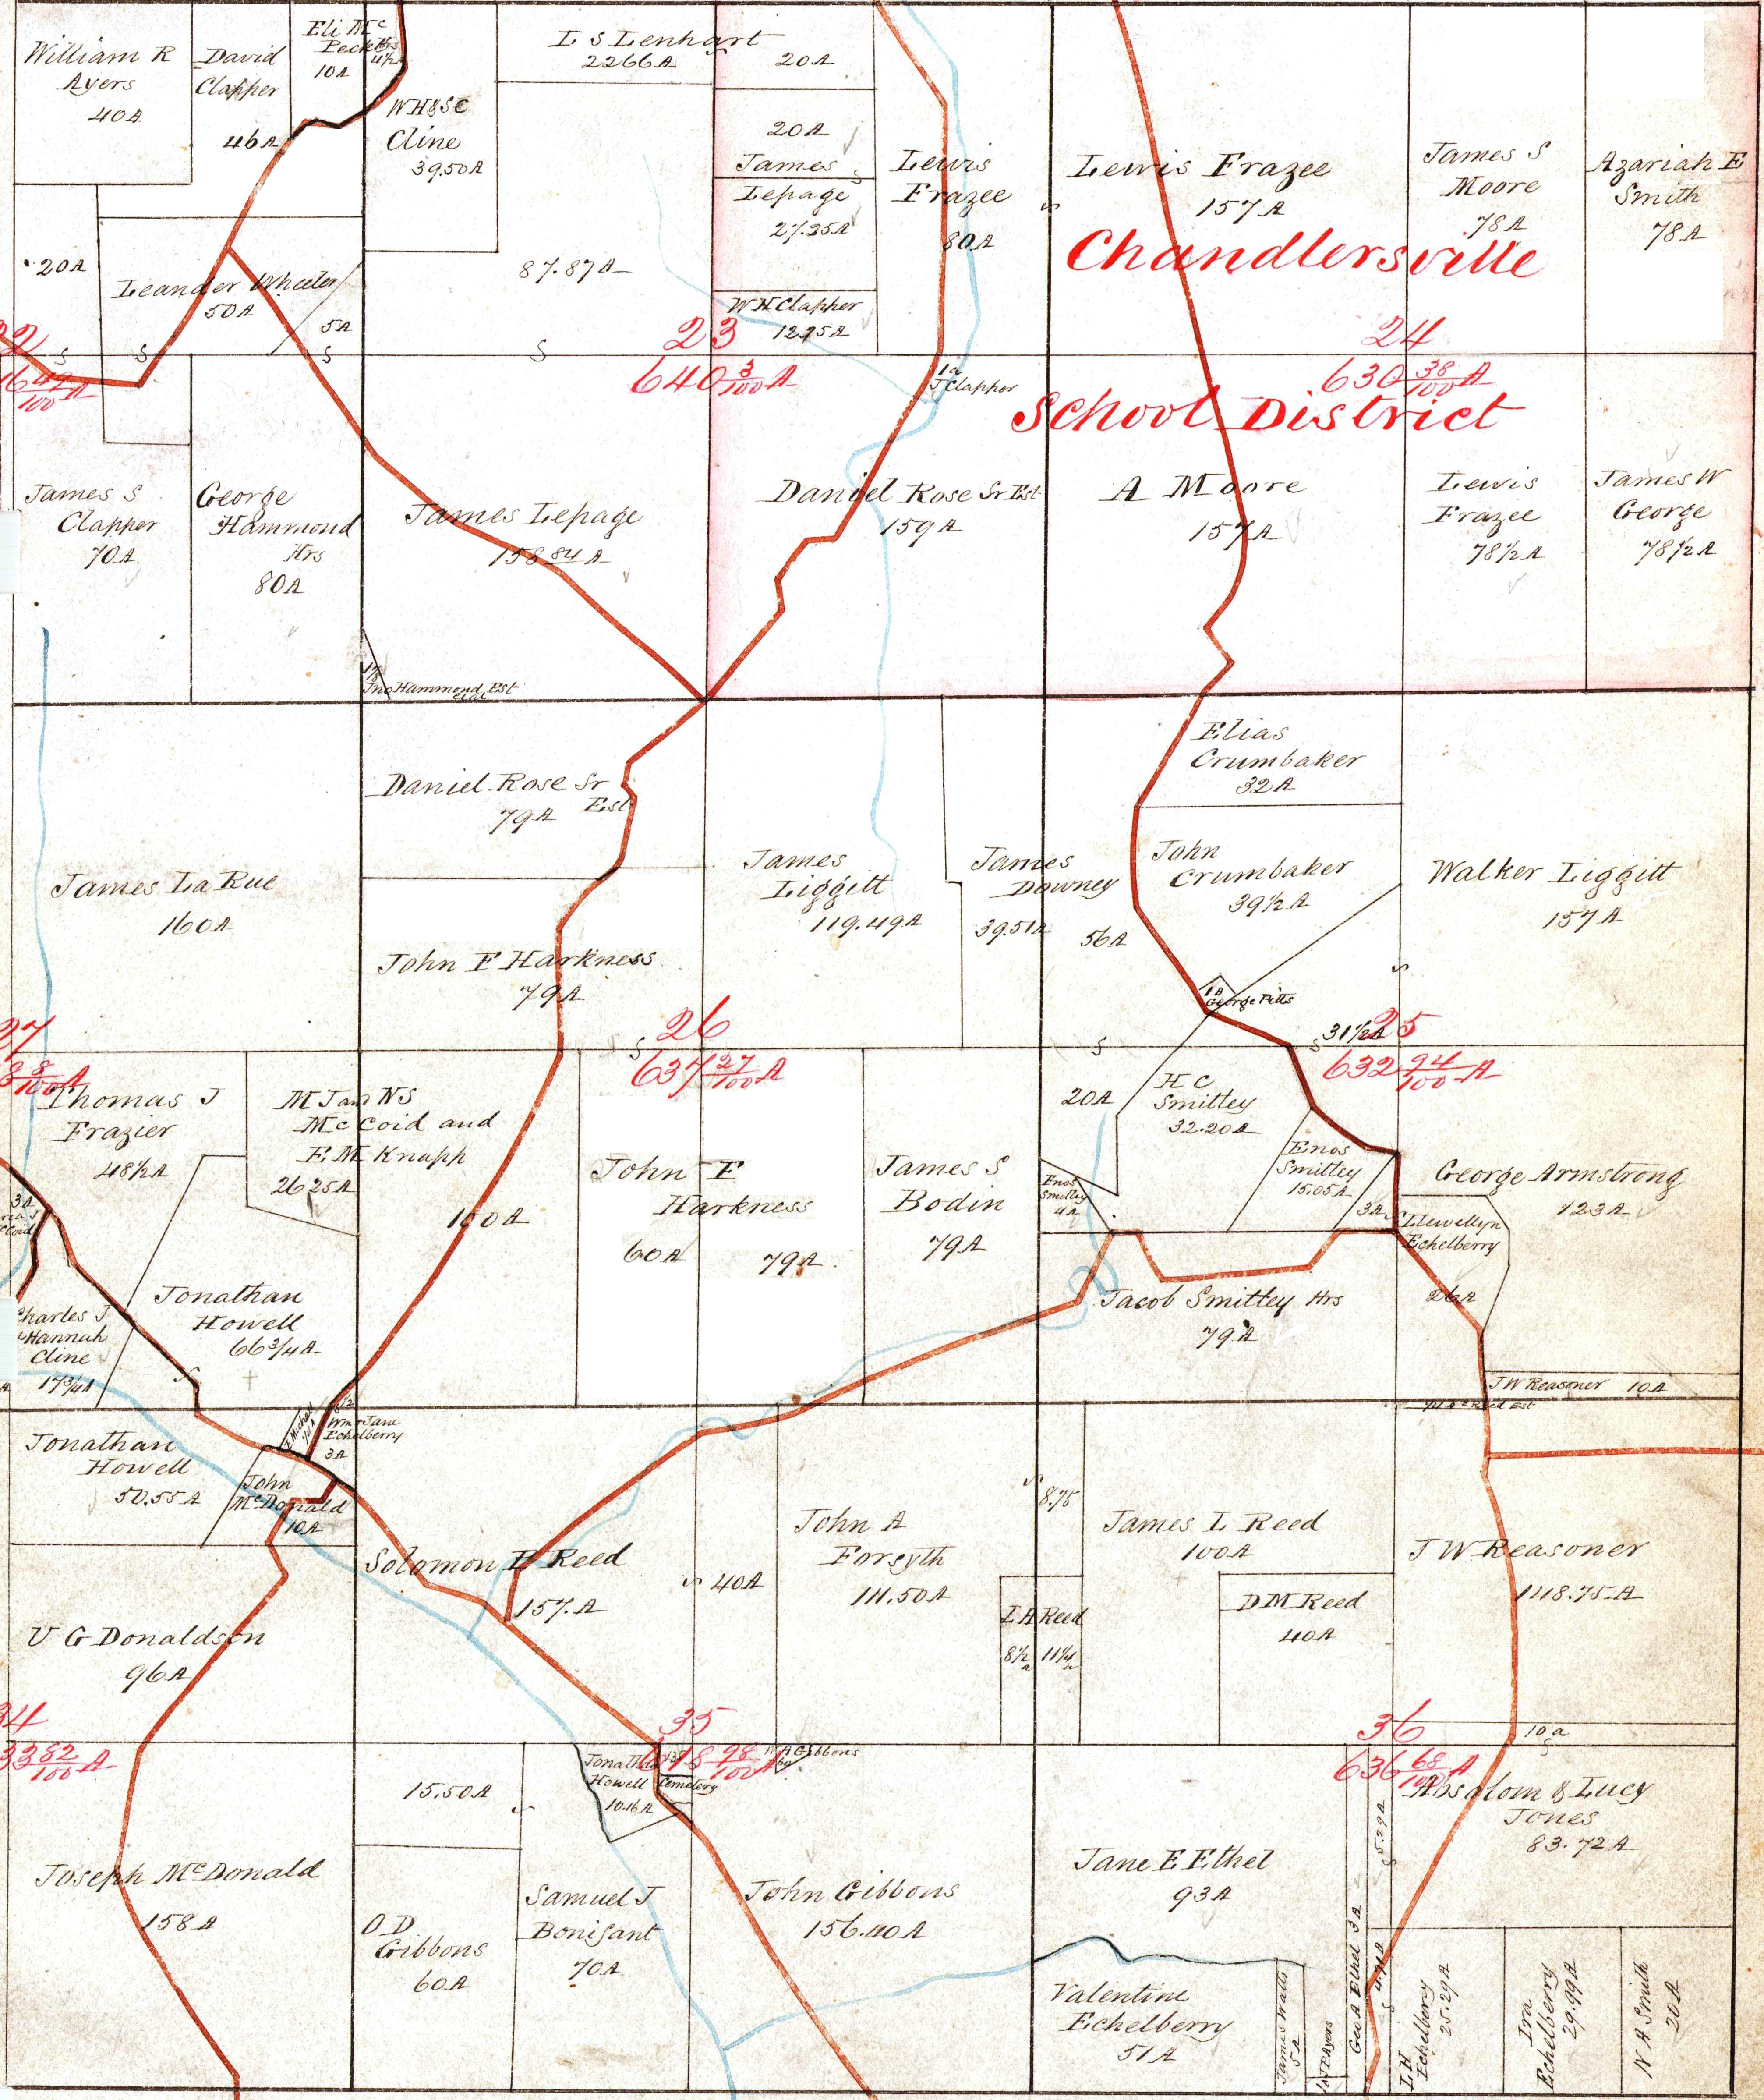 William R
Ayers
40A
David
Clapper
46A
Eli Mc
Peek Hrs
10A
4½
W H & S C
Cline
39.50A
L S Lenhart
22.66A
20A
20A
James
Lepage
27.25A
W H Clapper
12.95A
Lewis
Frazee
80A
Lewis Frazee
157A
James S
Moore
78A
Azariah E
Smith
78A
Chandlersville
School District
20A
Leander Wheeler
50A
5A
87.87A
22
23
640 3/100 A
24
630 38/100 A
1a
J Clapper
James S
Clapper
70A
George
Hammond
Hrs
80A
James Lepage
158 84 A
Daniel Rose Sr Est
159A
A Moore
157A
Lewis
Frazee
78½A
James W
George
78½A
Jno Hammond Est
Daniel Rose Sr
Est
79A
Elias
Crumbaker
32A
James La Rue
160A
John F Harkness
79A
James
Liggitt
119.49A
James
Downey
39.51A
56A
John
Crumbaker
39½A
Walker Liggitt
157A
1A
George Pitts
31½A
27
26
637 27/100 A
25
632 94/100 A
Thomas J
Frazier
48½A
M J an N S
McCoid and
E M Knapp
26.25A
100A
John F
Harkness
60A
79A
James S
Bodin
79A
20A
H C
Smitley
32.20A
Enos
Smitley
4A
Enos
Smitley
15.05A
3A
George Armstrong
123A
Llewellyn
Echelberry
26A
3A
Charles J
& Hannah
Cline
17¾A
Jonathan
Howell
66¾A
Jacob Smitley Hrs
79A
J W Reasoner 10A
Jonathan
Howell
50.55A
Wm & Jane
Echelberry
3A
John
McDonald
10A
Solomon E Reed
157.A
40A
John A
Forsyth
111.50A
8.75
James L Reed
100A
D M Reed
40A
L A Reed
8½ a
11¼ a
J W Reasoner
148.75A
U G Donaldson
96A
34
35
618 98/100 A
36
636 68/100 A
10a
15.50A
Jonathan
Howell
10.16A
Cemetery
A Gibbons
Absalom & Lucy
Jones
83.72A
Joseph McDonald
158A
O D
Gibbons
60A
Samuel J
Bonifant
70A
John Gibbons
156.40A
Jane E Ethel
93A
5.29A
Geo A Ethel 3A
4.71A
Valentine
Echelberry
51A
James Watts
5A
W R Ayers
L H
Echelberry
25.29A
Ira
Echelberry
29.99A
N A Smith
20A